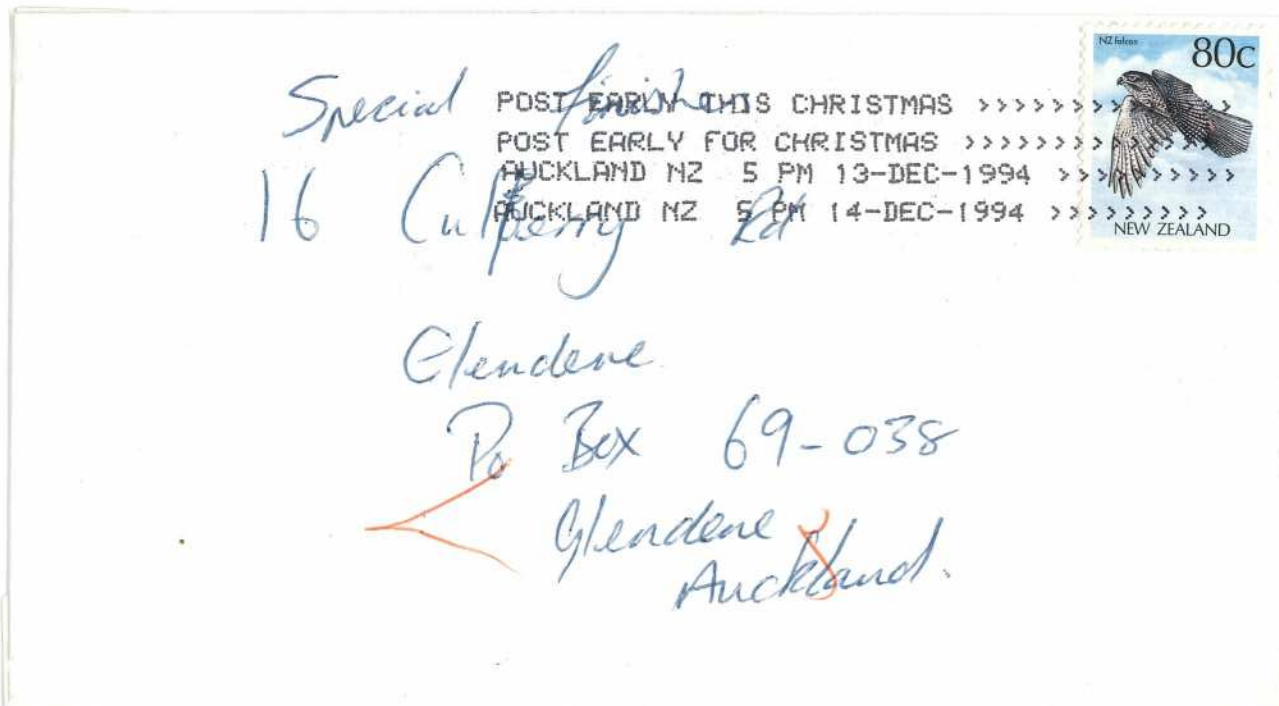 NZ falcon
80c
NEW ZEALAND
POST EARLY THIS CHRISTMAS >>>>>>>>>>>>>>>
POST EARLY FOR CHRISTMAS >>>>>>>>>>>>>>>
AUCKLAND NZ 5 PM 13-DEC-1994 >>>>>>>>>>
AUCKLAND NZ 5 PM 14-DEC-1994 >>>>>>>>>
Special
16 Rd
Glendene
Po Box 69-038
Glendene
Auckland.